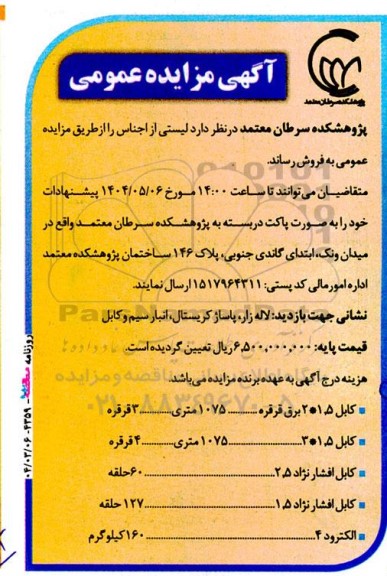 پژوهشکده سرطان معتمد
آگهی مزایده عمومی
پژوهشکده سرطان معتمد در نظر دارد لیستی از اجناس را از طریق مزایده
عمومی به فروش رساند.
متقاضیان می‌توانند تا ساعت ۱۴:۰۰ مورخ ۱۴۰۴/۰۵/۰۶ پیشنهادات
خود را به صورت پاکت دربسته به پژوهشکده سرطان معتمد واقع در
میدان ونک، ابتدای گاندی جنوبی، پلاک ۱۴۶ ساختمان پژوهشکده معتمد
اداره امور مالی کد پستی: ۱۵۱۷۹۶۴۳۱۱ ارسال نمایند.
نشانی جهت بازدید: لاله زار، پاساژ کریستال، انبار سیم و کابل
قیمت پایه: ۶,۵۰۰,۰۰۰,۰۰۰ ریال تعیین گردیده است.
هزینه درج آگهی به عهده برنده مزایده می‌باشد.
کابل ۱,۵*۲ برق قرقره .......... ۱۰۷۵ متری .......... ۳ قرقره
کابل ۱,۵*۳ .......... ۱۰۷۵ متری .......... ۴ قرقره
کابل افشار نژاد ۲,۵ .......... ۶۰ حلقه
کابل افشار نژاد ۱,۵ .......... ۱۲۷ حلقه
الکترود ۴ .......... ۱۶۰ کیلوگرم
روزنامه ۴۳۵۹ - ۰۴/۰۳/۰۶
۰۲۱-۸۸۳۴۹۶۷۰-۵